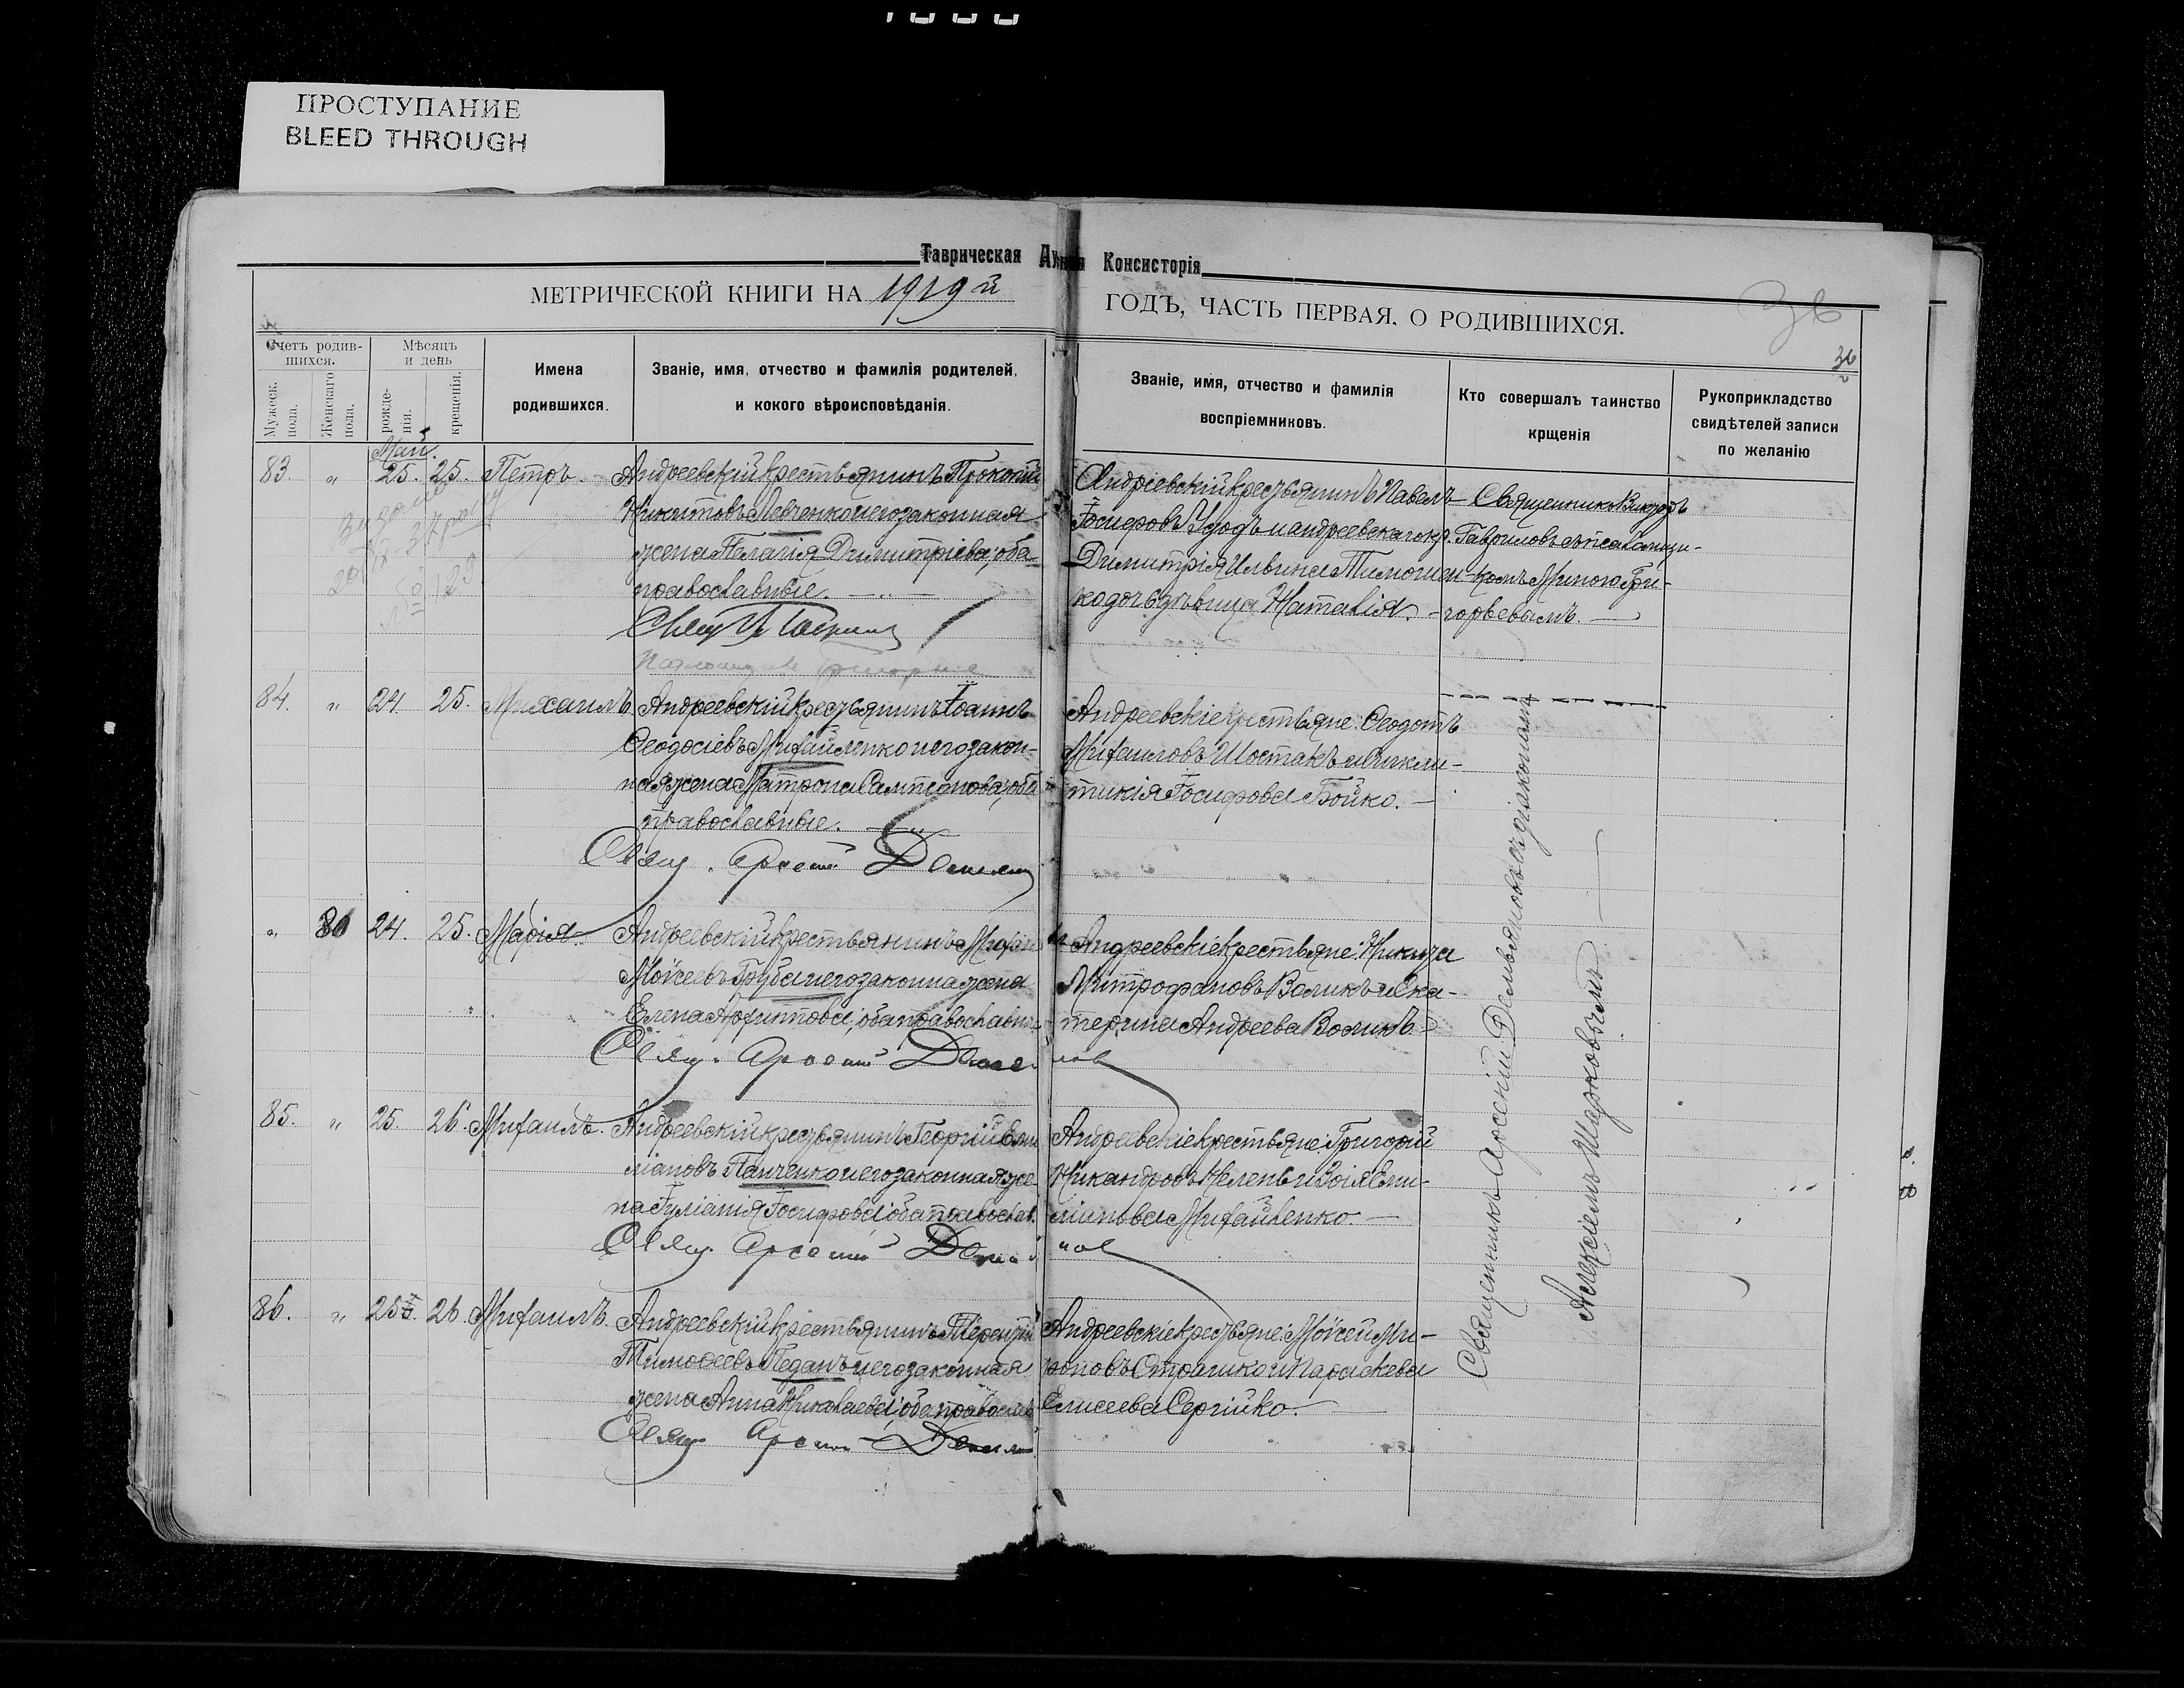 ПРОСТУПАНИЕ
BLEED THROUGH
Таврическая Ду Консисторія
МЕТРИЧЕСКОЙ КНИГИ НА 1919 й
ГОДЪ, ЧАСТЬ ПЕРВАЯ, О РОДИВШИХСЯ.
36
Счетъ родив-
шихся.
Мужеск. пола.
Женскаго пола.
Мѣсяцъ
и день
рожде-
нія.
крещенія.
Имена
родившихся.
Званіе, имя, отчество и фамилія родителей,
и кокого вѣроисповѣданія.
Званіе, имя, отчество и фамилія
воспріемниковъ.
Кто совершалъ таинство
крщенія
Рукоприкладство
свидѣтелей записи
по желанію
Май.
83. " 25. 25. Петръ. Андреевскій крестьянинъ Прокопій
Никитовъ Левченко и его законная
жена Пелагія Димитріева, оба
православные.
Андріевскій крестьянинъ Павелъ
Іосифовъ Удодъ и андреевскаго кр.
Димитрія Ильина Тимошен-
ко дочь дѣвица Наталія.
Священникъ Викторъ
Гавриловъ съ псаломщи-
комъ Миною Гри-
горьевымъ.
84. " 24. 25. Михаилъ. Андреевскій крестьянинъ Іоаннъ
Ѳеодосіевъ Михайленко и его закон-
ная жена Матрона Сампсонова, оба
православные.
Свящ. Арсеній
Андреевскіе крестьяне: Ѳеодотъ
Михаиловъ Шостакъ и Анкли-
тикія Іосифова Бойко.
" 80 24. 25. Марія. Андреевскій крестьянинъ Михаи
Моѵсеевъ Груба и его законна жена
Елена Архиппова, оба православны
Свящ. Арсеній
Андреевскіе крестьяне: Никита
Митрофановъ Воликъ и Ека-
терина Андреева Воликъ
85. " 25. 26. Михаилъ. Андреевскій крестьянинъ Георгій Еми
ліановъ Панченко и его законная же
на Іуліанія Іосифова, оба православ.
Свящ. Арсеній
Андреевскіе крестьяне: Григорій
Никандровъ Келепъ и Зоія Еми-
ліанова Михайленко.
86. " 25. 26. Михаилъ. Андреевскій крестьянинъ Терентій
Тимоѳеевъ Педанъ и его законная
жена Анна Николаева, оба православ
Свящ. Арсеній
Андреевскіе крестьяне: Моѵсей Ми-
роновъ Страшко и Параскева
Елисеева Сергійко.
Священникъ Арсеній Демьяновъ съ діакономъ
Алексіемъ Марковымъ